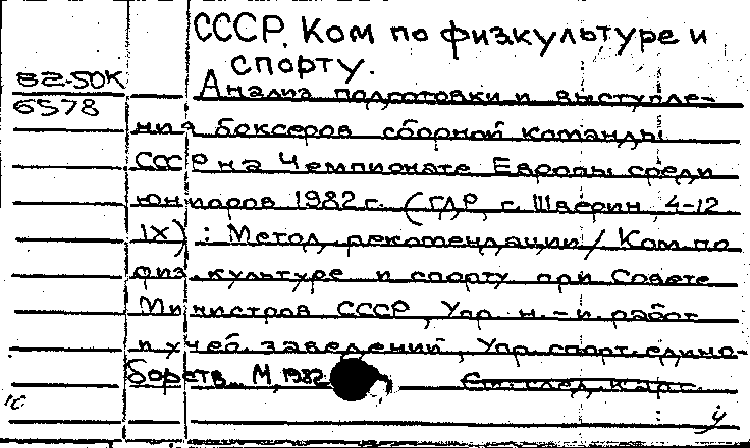 СССР. Ком по физкультуре и
спорту.
82-50К
6578
Анализ подготовки и выступле-
ния боксеров сборной команды
СССР на Чемпионате Европы среди
юниоров 1982 г. (ГДР, г. Шверин, 4-12
IX) : Метод. рекомендации / Ком по
физ. культуре и спорту при Совете
Министров СССР, Упр. н.-и. работ
и учеб. заведений, Упр. спорт. едино-
борств. М, 1982
См. след. карт.
10